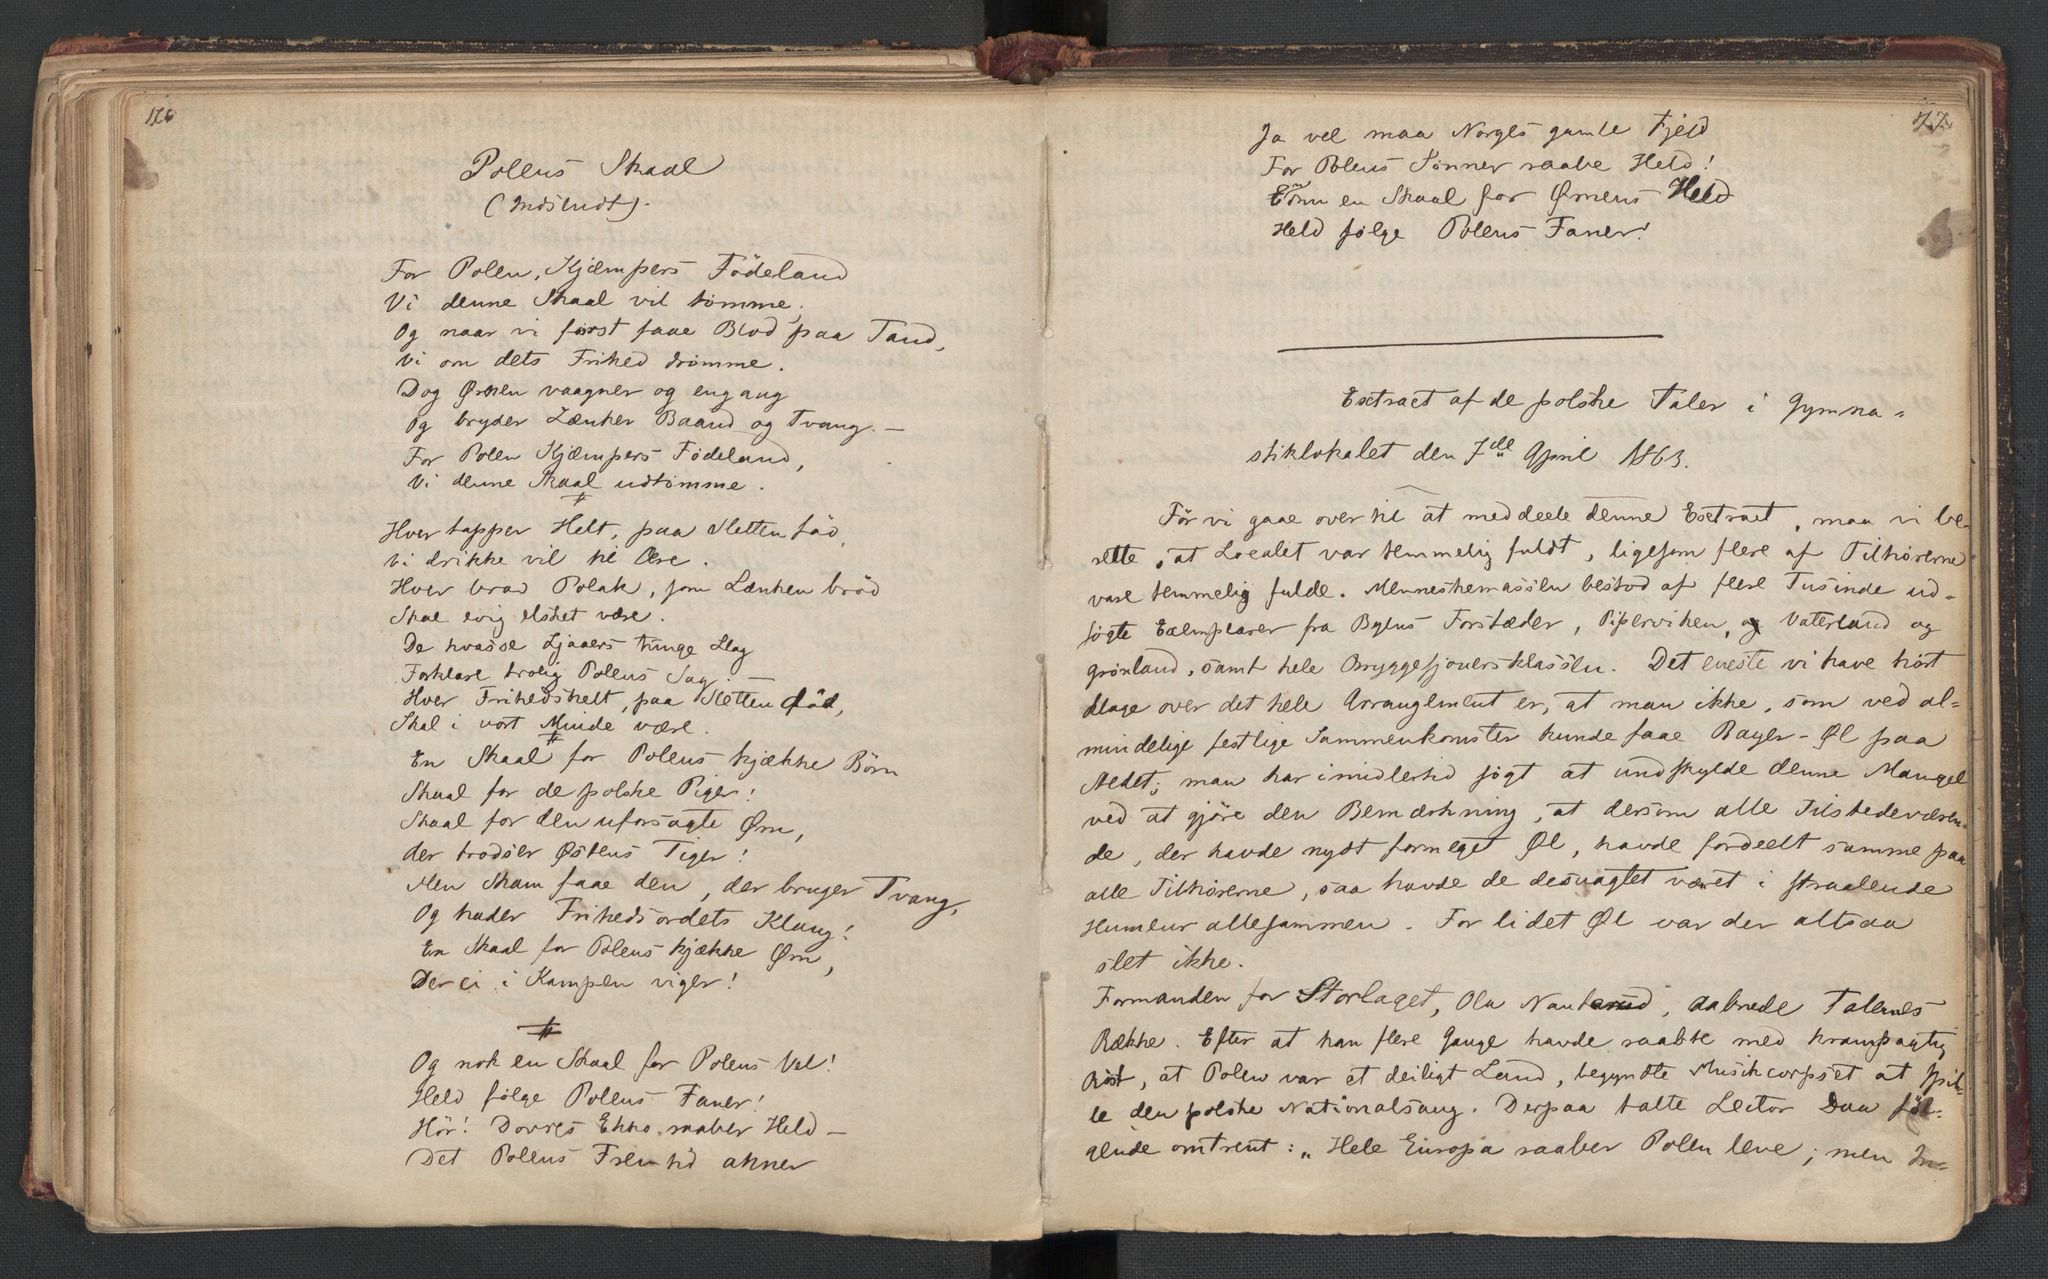 176
Polens Skaal
(Indsendt).
For Polen, Kjæmpers Födeland
Vi denne Skaal vil tömme,
Og naar vi först faae Blod paa Tand,
Vi om dets Frihed drömme.
Dog Ørnen vaagner og engang
Og bryder Lænker Baand og Tvang. —
For Polen Kjæmpers Födeland,
Vi denne Skaal udtömme.
#
Hver tapper Helt, paa Sletten död,
Vi drikke vil til Ære.
Hver brav Polak, som Lænken bröd
Skal evig elsket være.
De hvasse Ljaaers tunge Slag
Forklare trolig Polens Sag. —
Hver Frihedshelt, paa Sletten död,
Skal i vort Minde være.
#
En Skaal for Polens kjække Börn
Skaal for de polske Piger!
Skaal for den uforsagte Ørn,
der trodser Østens Tiger!
Men Skam faae den, der bruger Tvang,
Og hader Frihedsordets Klang!
En Skaal for Polens kjække Ørn,
Der ei i Kampen viger!
#
Og nok en Skaal for Polens Vel!
Held fölge Polens Faner!
Hör! Dovres Ekko raaber Held —
Det Polens Fremtid ahner
177
Ja vel maa Norges gamle Fjeld
For Polens Sönner raabe Held!
Töm en Skaal for Ørnens Held
Held fölge Polens Faner!
Extract af de polske Taler i Gymna=
stiklokalet den 7de April 1863.
För vi gaae over til at meddeele denne Extract, maa vi be=
rette, at Localet var temmelig fuldt, ligesom flere af Tilhörerne
vare temmelig fulde. Menneskemassen bestod af flere Tusinde ud=
sögte Exemplarer fra Byens Forstæder, Piperviken, og Vaterland og
Grönland, samt hele Bryggesjouersklassen. Det eneste vi have hört
klage over det hele Arrangement er, at man ikke, som ved al=
mindelige festlige Sammenkomster kunde faae Bayer-Øl paa
Stedet; man har imidlertid sögt at undskylde denne Mangel
ved at gjöre den Bemærkning, at dersom alle Tilstedeværen=
de, der havde nydt formeget Øl, havde fordeelt samme paa
alle Tilhörerne, saa havde de desuagtet været i straalende
Humeur allesammen. For lidet Øl var der altsaa
slet ikke.
Formanden for Storlaget, Ola aabnede Talernes
Række. Efter at han flere Gange havde raabt med krampagtig
Röst, at Polen var et deiligt Land, begyndte Musikcorpset at spil=
le den polske Nationalsang. Derpaa talte Lector Daa föl=
gende omtrent: „Hele Europa raaber Polen leve; men In=